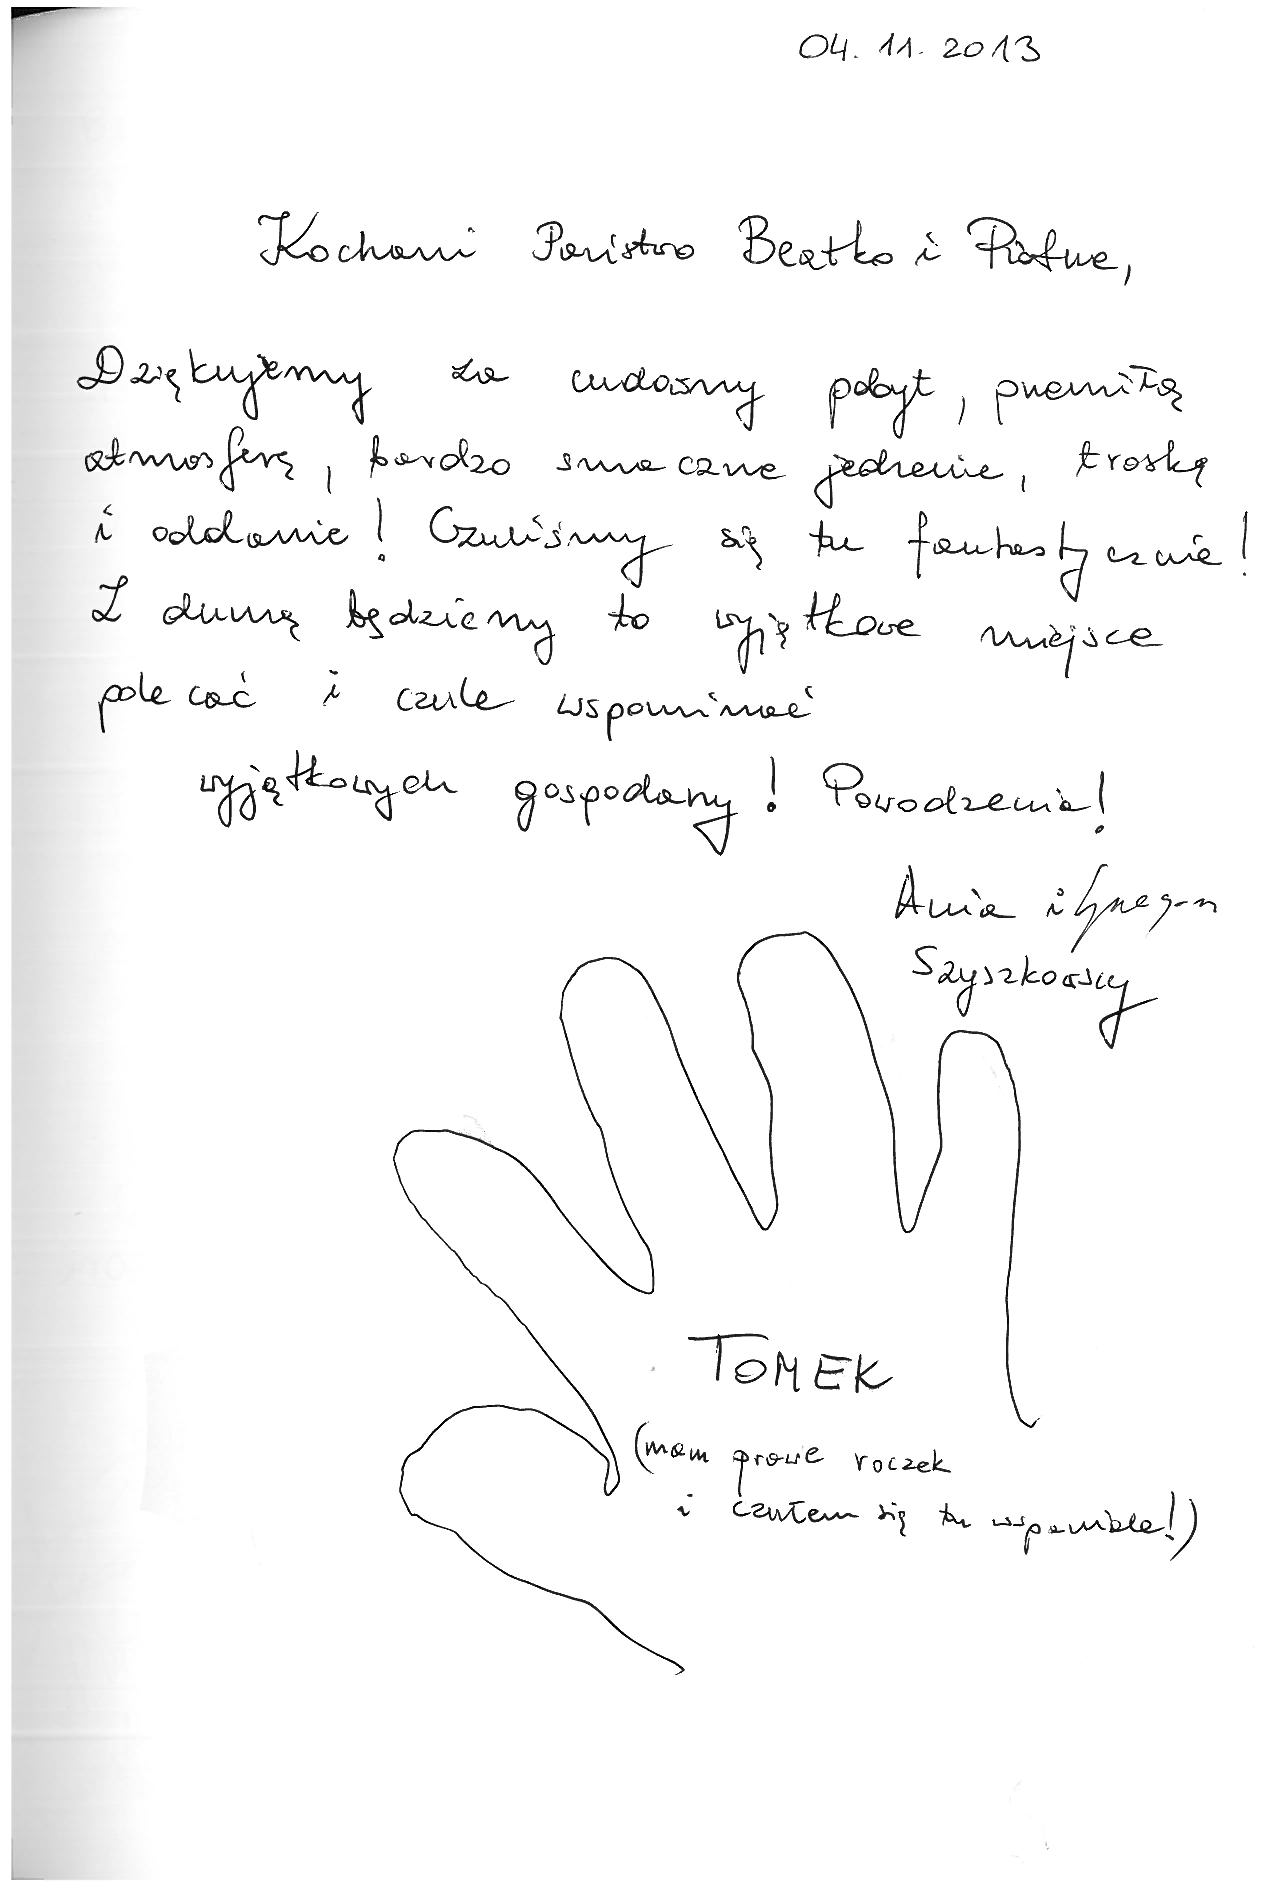 04. 11. 2013
Kochani Państwo Beatko i Piotrze,
Dziękujemy za cudowny pobyt, przemiłą
atmosferę, bardzo smaczne jedzenie, troskę
i oddanie! Czuliśmy się tu fantastycznie!
Z dumą będziemy to wyjątkowe miejsce
polecać i czule wspominać
wyjątkowych gospodarzy! Powodzenia!
Ania i Grzegorz
Szyszkowscy
TOMEK
(mam prawie roczek
i czułem się tu wspaniale!)